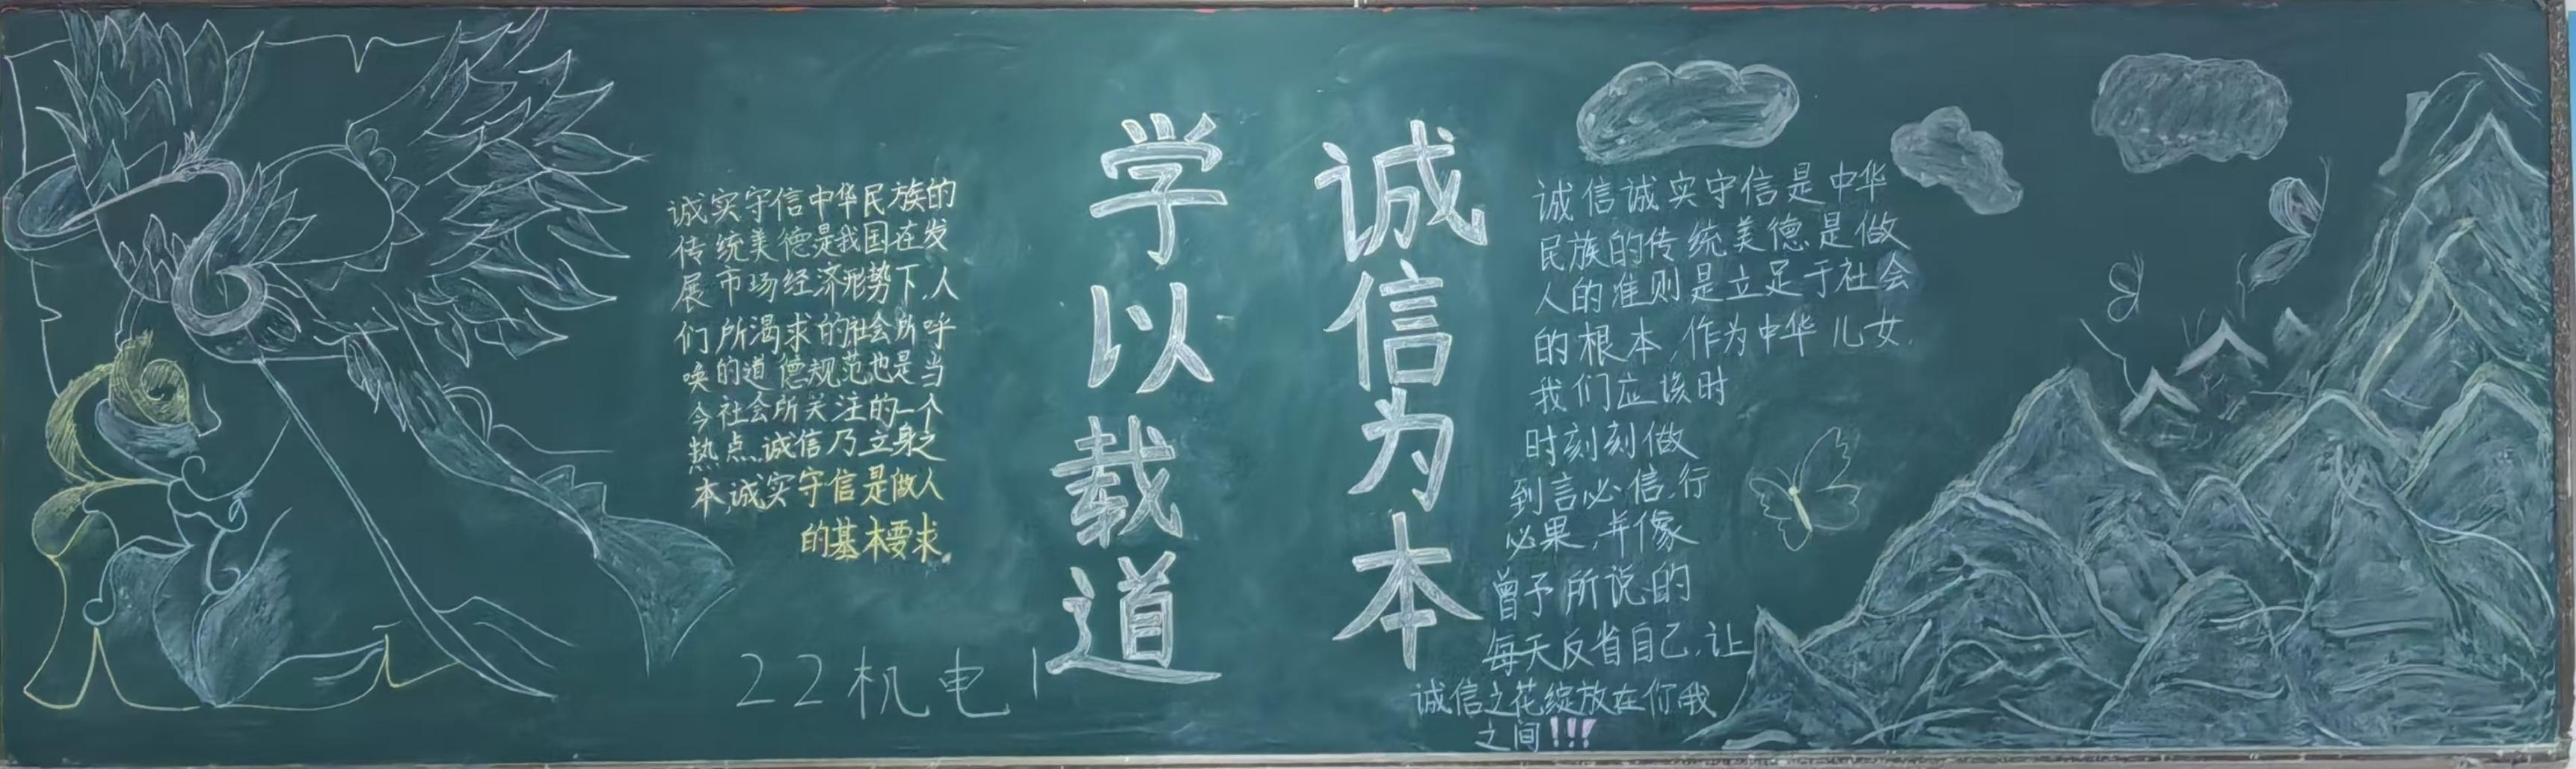 诚实守信中华民族的
传统美德是我国在发
展市场经济形势下,人
们所渴求的社会所呼
唤的道德规范也是当
今社会所关注的一个
热点.诚信乃立身之
本,诚实守信是做人
的基本要求.
22机电1
学以载道
诚信为本
诚信诚实守信是中华
民族的传统美德是做
人的准则是立足于社会
的根本,作为中华儿女,
我们应该时
时刻刻做
到言必信,行
必果,并像
曾予所说的
每天反省自己,让
诚信之花绽放在你我
之间!!!